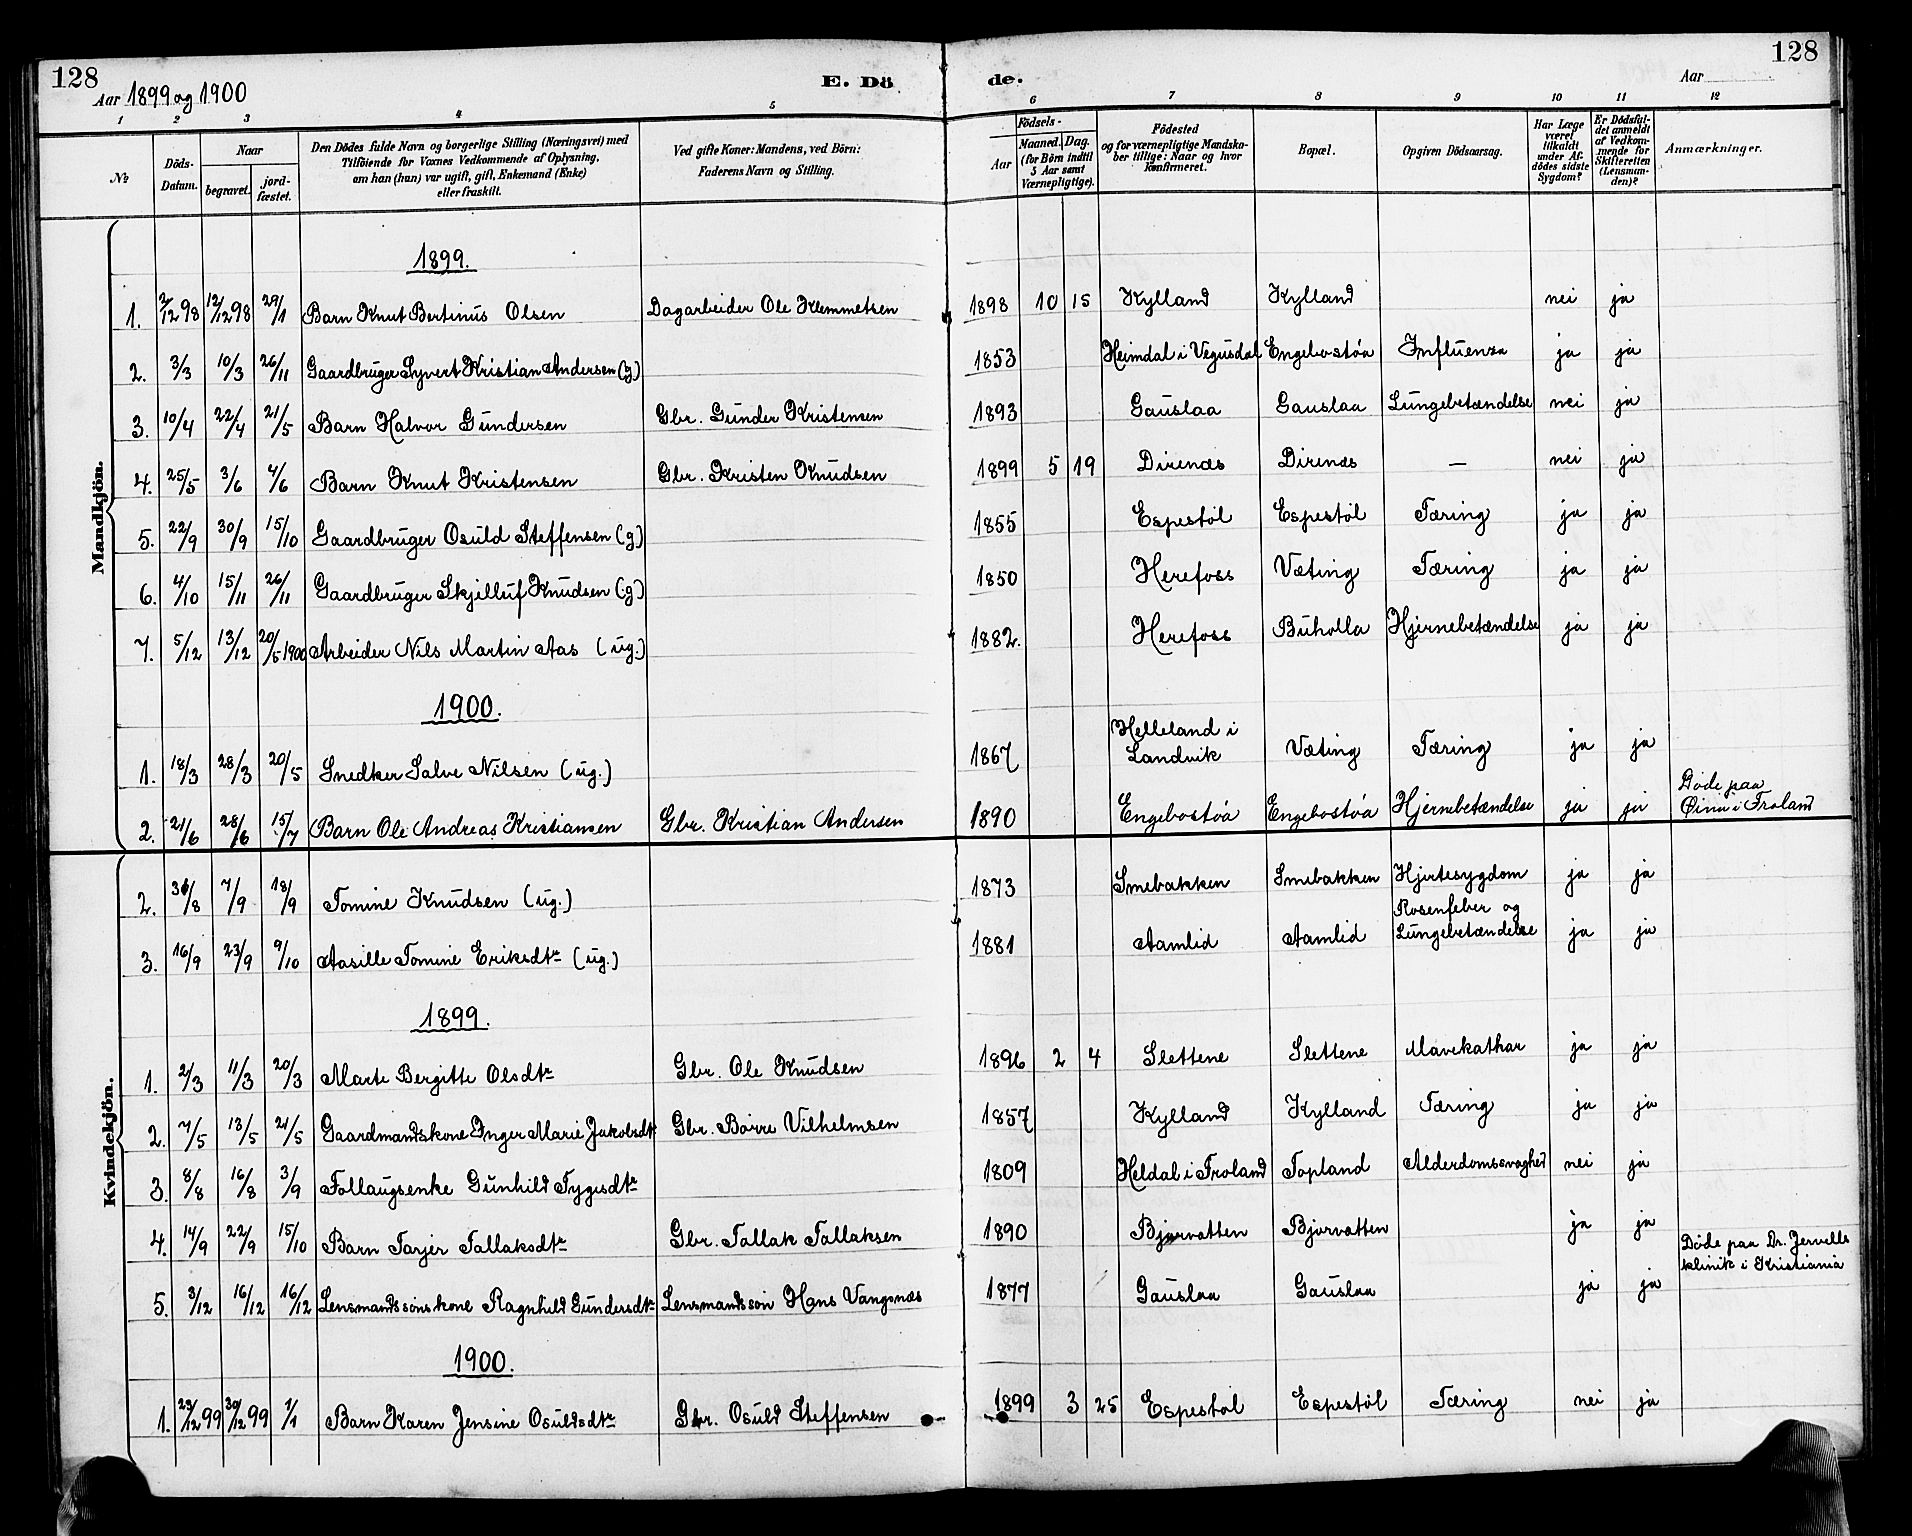 128
E. Dö
de.
128
Aar 1899 og 1900
Aar
1 2 3 4 5 6 7 8 9 10 11 12
№
Döds-
Datum.
Naar
begravet.
jord-
fæstet.
Den Dödes fulde Navn og borgerlige Stilling (Næringsvei) med
Tilföiende for Voxnes Vedkommende af Oplysning,
om han (hun) var ugift, gift, Enkemand (Enke)
eller fraskilt.
Ved gifte Koner: Mandens, ved Börn:
Faderens Navn og Stilling.
Födsels-
Aar
Maaned. Dag.
(for Börn indtil
5 Aar samt
Værnepligtige).
Födested
og for værnepligtige Mandsko-
ber tillige: Naar og hvor
Konfirmeret.
Bopæl.
Opgiven Dödsaarsag.
Har Læge
været
tilkaldt
under Af-
dödes sidste
Sygdom?
Er Dödsfal-
det anmeldt
af Vedkom-
mende for
Skifteretten
(Lensman-
den)?
Anmærkninger.
Mandkjön.
1899.
1. 2/12 98 12/12 98 29/1 Barn Knut Bertinus Olsen Dagarbeider Ole Klemmetsen 1898 10 15 Kylland Kylland nei ja
2. 3/3 10/3 26/11 Gaardbruger Syvert Kristian Andersen (g) 1853 Heimdal i Vegusdal Engebostøa Influensa ja ja
3. 10/4 22/4 21/5 Barn Halvor Gundersen Gbr. Gunder Kristensen 1893 Gauslaa Gauslaa Lungebetændelse nei ja
4. 25/5 3/6 4/6 Barn Knut Kristensen Gbr. Kristen Knudsen 1899 5 19 Direnæs Direnæs — nei ja
5. 22/9 30/9 15/10 Gaardbruger Osuld Steffensen (g) 1855 Espestøl Espestøl Tæring ja ja
6. 4/10 15/11 26/11 Gaardbruger Skjelluf Knudsen (g) 1850 Herefoss Væting Tæring ja ja
7. 5/12 13/12 20/5 1900 Arbeider Nils Martin Aas (ug.) 1882. Herefoss Buholla Hjernebetændelse ja ja
1900.
1. 18/3 28/3 20/5 Snedker Salve Nilsen (ug.) 1867 Helleland i Landvik Væting Tæring ja ja
2. 21/6 28/6 15/7 Barn Ole Andreas Kristiansen Gbr. Kristian Andersen 1890 Engebostøa Engebostøa Hjernebetændelse ja ja Døde paa i Froland
Kvindekjön.
2. 31/8 7/9 18/9 Tomine Knudsen (ug.) 1873 Smebakken Smebakken Hjertesygdom ja ja
3. 16/9 23/9 9/10 Aasille Tomine Eriksdtr (ug.) 1881 Aamlid Aamlid Rosenfeber og Lungebetændelse ja ja
1899.
1. 2/3 11/3 20/3 Marte Bergitte Olsdtr Gbr. Ole Knudsen 1896 2 4 Slettene Slettene Mavekathar ja ja
2. 7/5 13/5 21/5 Gaardmandskone Inger Marie Jakobsdtr Gbr. Børre Vilhelmsen 1857 Kylland Kylland Tæring ja ja
3. 8/8 16/8 3/9 Follaugsenke Gunhild Tygesdtr 1809 Heldal i Froland Topland Alderdomssvaghed nei ja
4. 14/9 22/9 15/10 Barn Tarjer Tallaksdtr Gbr. Tallak Tallaksen 1890 Bjorvatten Bjorvatten ja ja
5. 3/12 16/12 16/12 Lensmandssønskone Ragnhild Gundersdtr Lensmandssøn Hans Vangsnæs 1877 Gauslaa Gauslaa ja ja Døde paa Dr. Jervells klinik i Kristiania
1900.
1. 23/12 99 30/12 99 1/1 Barn Karen Jensine Osuldsdtr Gbr. Osuld Steffensen 1899 3 25 Espestøl Espestøl Tæring nei ja